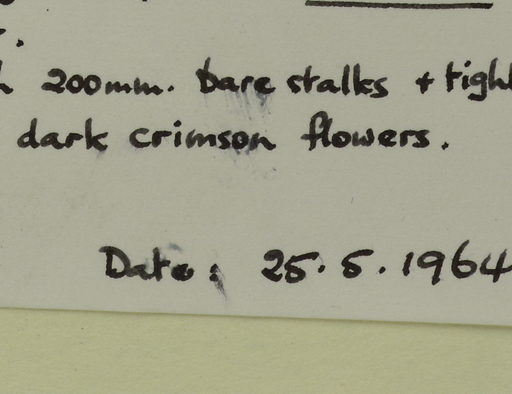 200mm. bare stalks + tight
dark crimson flowers.
Date: 25.5.1964